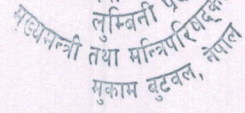 लुम्बिनी
मुख्यमन्त्री तथा मन्त्रिपरिषद्को
मुकाम बुटवल, नेपाल